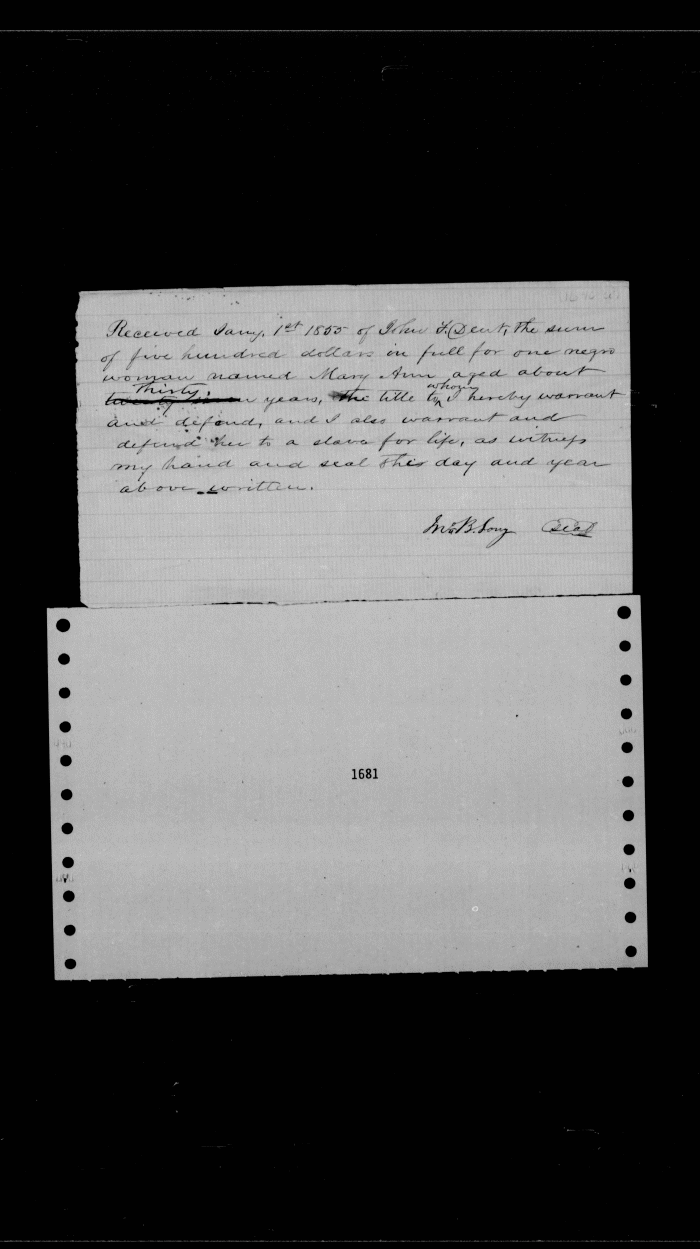 Received Jany. 1st 1855 of John F. Dent, the sum
of five hundred dollars in full for one negro
woman named Mary Ann aged about
thirty
twenty years, the title to whom I hereby warrant
and defend, and I also warrant and
defend her to a slave for life, as witness
my hand and seal this day and year
above written.
Jno B. Long Seal
1681